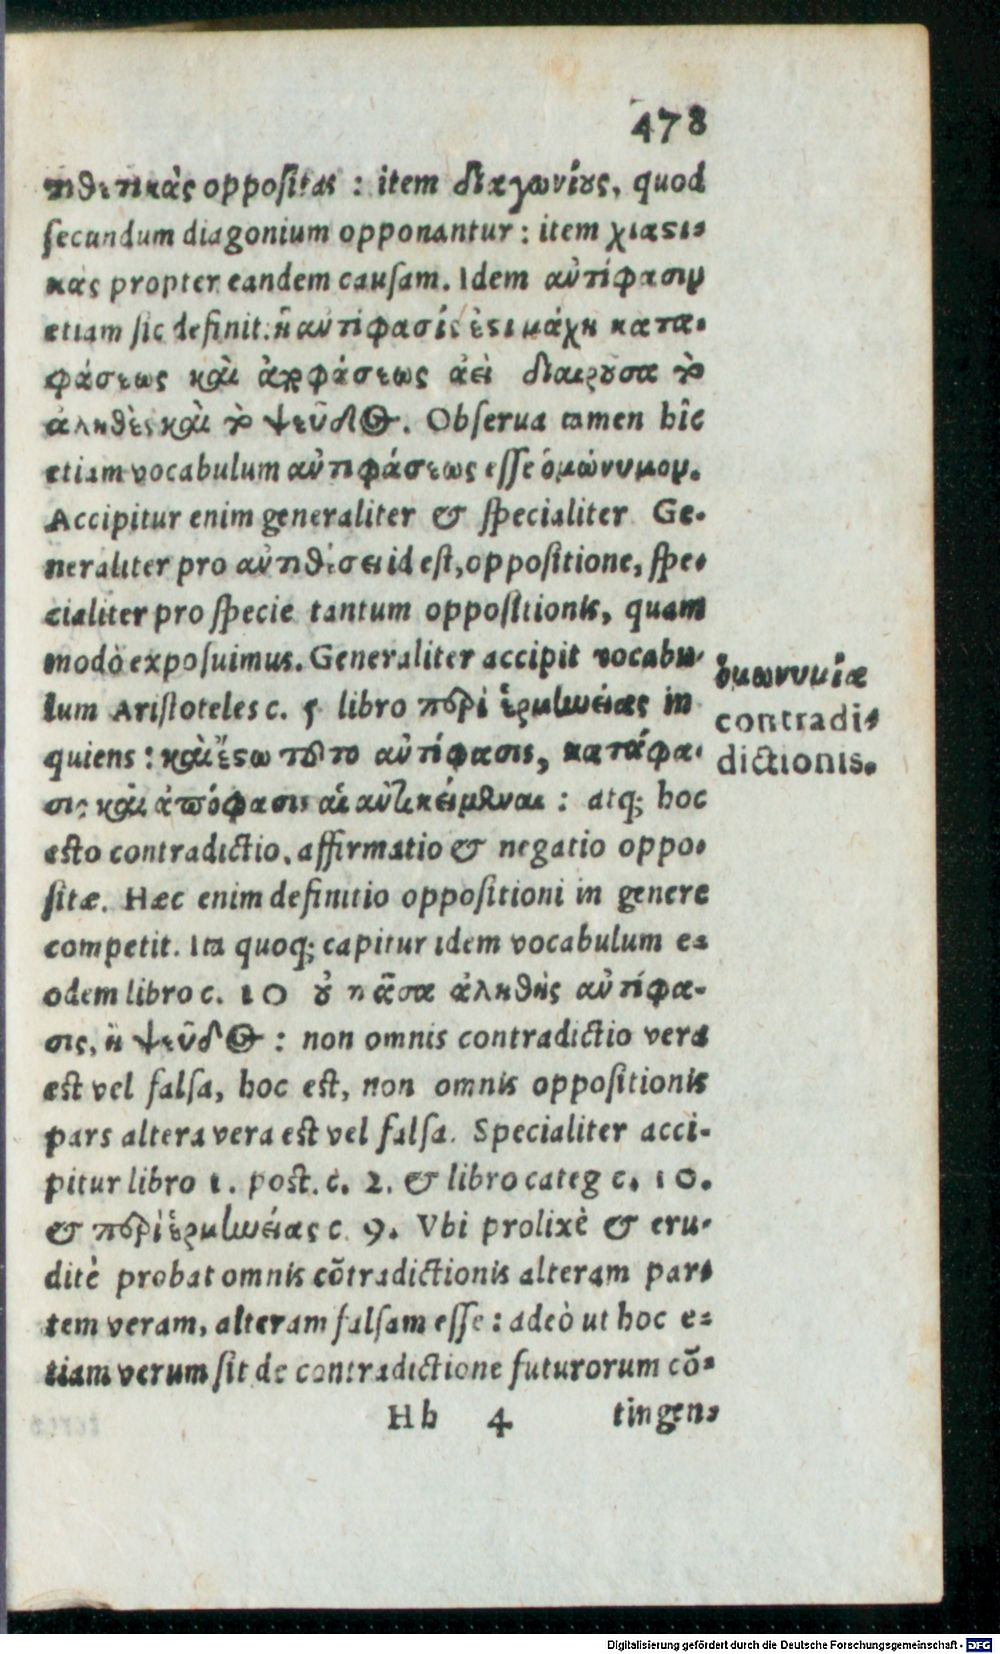 478
τιθετικὰς oppositas : item διαγωνίους, quod
secundum diagonium opponantur : item χιαστι-
κας propter eandem causam. Idem ἀντίφασιν
etiam sic definit. ἡ ἀντίφασίς ἐστι μάχη κατα-
φάσεως καὶ ἀποφάσεως ἀεὶ διαιροῦσα τὸ
ἀληθὲς καὶ τὸ ψεῦδος. Obserua tamen hîc
etiam vocabulum ἀντιφάσεως esse ὁμώνυμον.
Accipitur enim generaliter & specialiter Ge-
neraliter pro ἀντιθέσει id est, oppositione, spe-
cialiter pro specie tantum oppositionis, quam
modò exposuimus. Generaliter accipit vocabu-
lum Aristoteles c. 5 libro περὶ ἑρμηνείας in
quiens : καὶ ἔστω τοῦτο ἀντίφασις, κατάφα-
σις καὶ ἀπόφασις αἱ ἀντικείμεναι : atq; hoc
esto contradictio, affirmatio & negatio oppo-
sitæ. Hæc enim definitio oppositioni in genere
competit. Ita quoq; capitur idem vocabulum e-
odem libro c. 10 οὐ πᾶσα ἀληθὴς ἀντίφα-
σις, ἢ ψεῦδος : non omnis contradictio vera
est vel falsa, hoc est, non omnis oppositionis
pars altera vera est vel falsa. Specialiter acci-
pitur libro 1. post. c. 2. & libro categ c. 10.
& περὶ ἑρμηνείας c. 9. Vbi prolixè & eru-
ditè probat omnis cōtradictionis alteram par-
tem veram, alteram falsam esse : adeò ut hoc e-
tiam verum sit de contradictione futurorum cō-
Hh 4 tingen-
ὁμωνυμία
contradi-
dictionis.
Digitalisierung gefördert durch die Deutsche Forschungsgemeinschaft - DFG